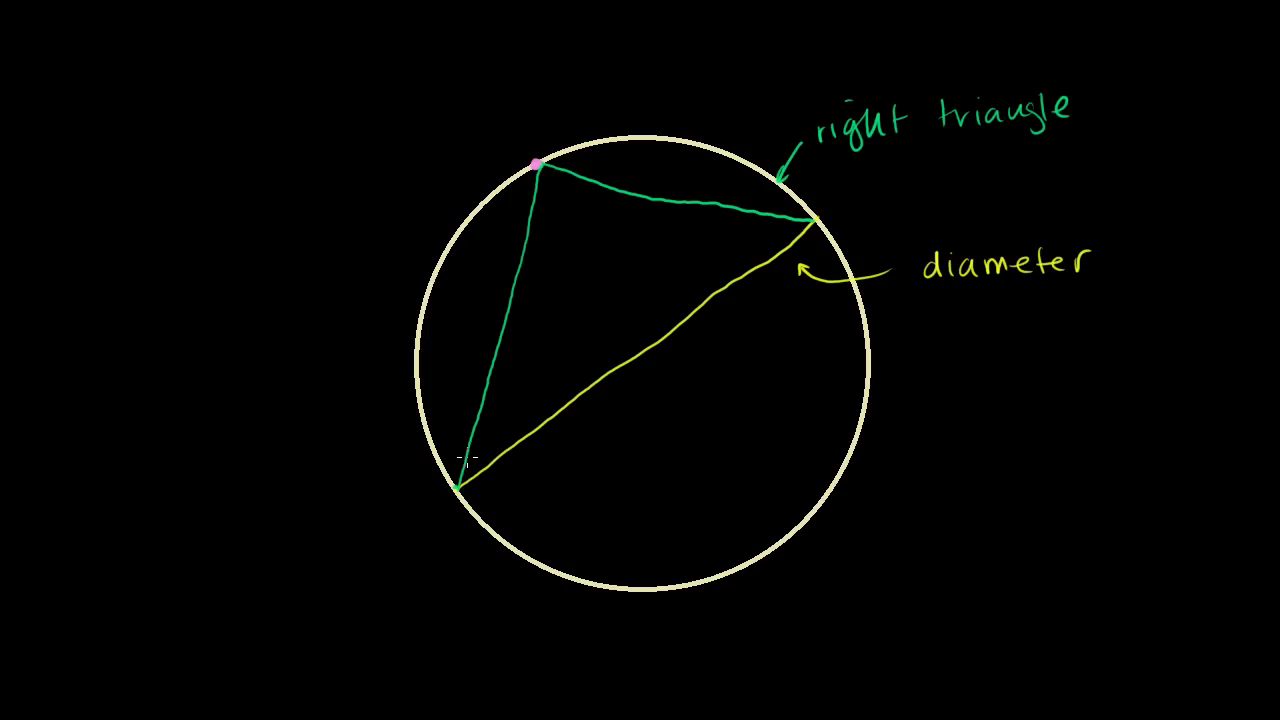 right triangle
diameter